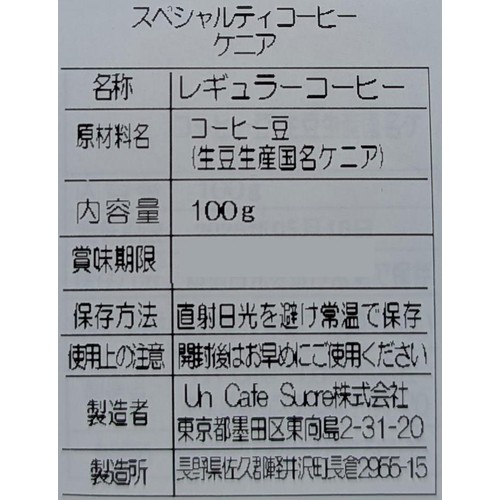 スペシャルティコーヒー
ケニア
名称 レギュラーコーヒー
原材料名 コーヒー豆
(生豆生産国名ケニア)
内容量 100g
賞味期限
保存方法 直射日光を避け常温で保存
使用上の注意 開封後はお早めにご使用ください
製造者 Un Cafe Sucre株式会社
東京都墨田区東向島2-31-20
製造所 長野県佐久郡軽井沢町長倉2955-15